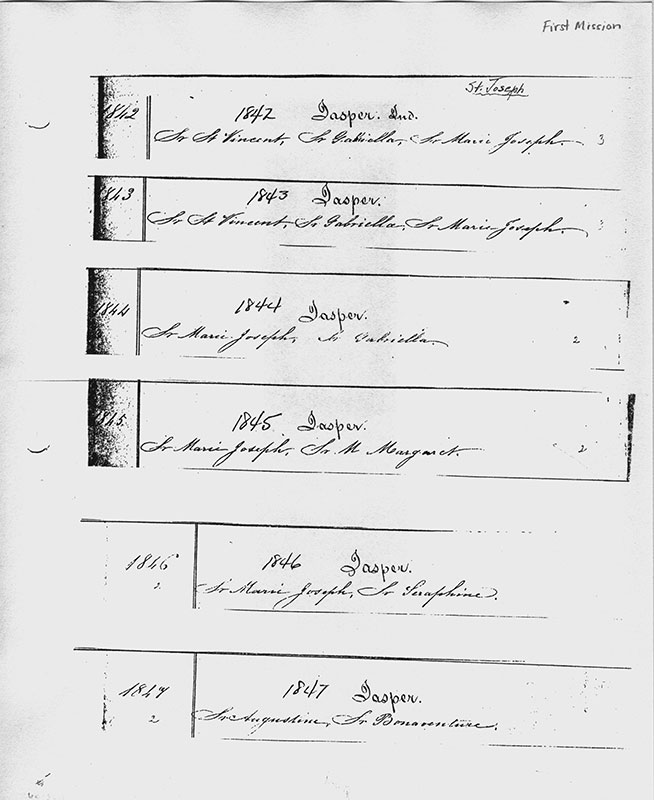 First Mission
St. Joseph
1842 1842 Jasper. Ind.
Sr St Vincent, Sr Gabriella, Sr Marie Joseph. 3
1843 1843 Jasper.
Sr St Vincent, Sr Gabriella, Sr Marie Joseph. 3
1844 1844 Jasper.
Sr Marie Joseph, Sr Gabriella. 2
1845 1845 Jasper.
Sr Marie Joseph, Sr M Margaret. 2
1846 1846 Jasper.
2 Sr Marie Joseph, Sr Seraphine.
1847 1847 Jasper.
2 Sr Augustine, Sr Bonaventure.